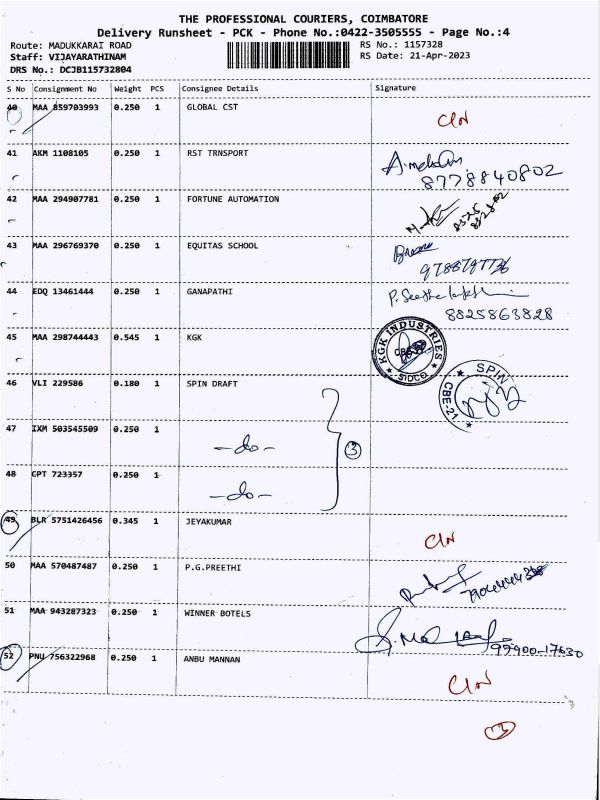 THE PROFESSIONAL COURIERS, COIMBATORE
Delivery Runsheet - PCK - Phone No.:0422-3505555 - Page No.:4
Route: MADUKKARAI ROAD RS No.: 1157328
Staff: VIJAYARATHINAM RS Date: 21-Apr-2023
DRS No.: DCJB115732804
S No Consignment No Weight PCS Consignee Details Signature
40 MAA 859703993 0.250 1 GLOBAL CST
41 AKM 1108105 0.250 1 RST TRNSPORT
8778840802
42 MAA 294907781 0.250 1 FORTUNE AUTOMATION
43 MAA 296769370 0.250 1 EQUITAS SCHOOL
44 EDQ 13461444 0.250 1 GANAPATHI
8825863828
45 MAA 298744443 0.545 1 KGK
KGK INDUSTRIES
SIDCO
46 VLI 229586 0.180 1 SPIN DRAFT
SPIN
CBE-21
47 IXM 503545509 0.250 1
-do-
3
48 CPT 723357 0.250 1
-do-
49 BLR 5751426456 0.345 1 JEYAKUMAR
50 MAA 570487487 0.250 1 P.G.PREETHI
51 MAA 943287323 0.250 1 WINNER BOTELS
99900-17630
52 PNU 756322968 0.250 1 ANBU MANNAN